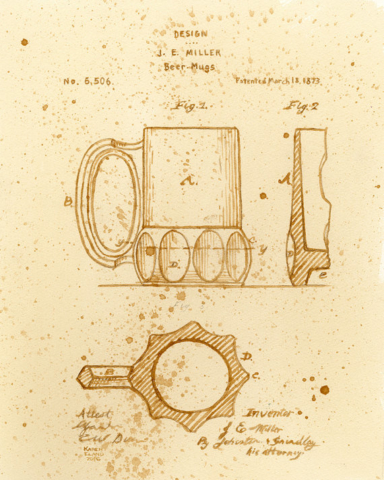 DESIGN
J. E. MILLER
Beer-Mugs
No. 6,506.
Patented March 18, 1873.
Fig. 1.
Fig. 2
A.
A
B.
y
D.
e
B
D.
C.
Attest
Inventor
J E Miller
By Johnston & 
his attorney
KAREN